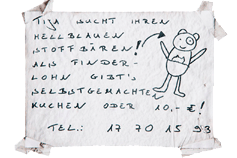 TIJA SUCHT IHREN
HELLBLAUEN
STOFFBÄREN!
ALS FINDER-
LOHN GIBT'S
SELBSTGEMACHTEN
KUCHEN ODER 10,- €!
TEL.: 17 70 15 93